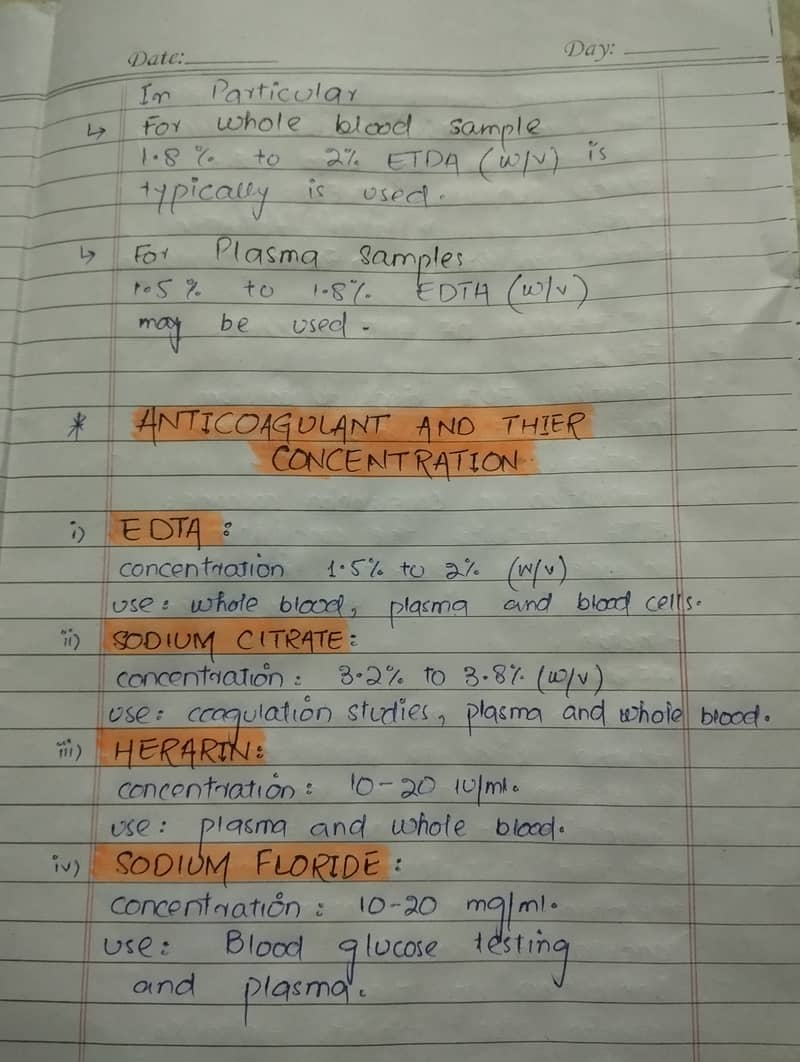 Date: Day:
In Particular
↳ For whole blood sample
1.8 % to 2% ETDA (w/v) is
typically is used.
↳ For Plasma samples
1.5 % to 1.8% EDTA (w/v)
may be used.
* ANTICOAGULANT AND THIER
CONCENTRATION
i) EDTA :
concentration 1.5% to 2% (w/v)
use : whole blood, plasma and blood cells.
ii) SODIUM CITRATE :
concentration : 3.2% to 3.8% (w/v)
use : coagulation studies, plasma and whole blood.
iii) HERARIN :
concentration : 10-20 IU/ml.
use : plasma and whole blood.
iv) SODIUM FLORIDE :
concentration : 10-20 mg/ml.
use : Blood glucose testing
and plasma.